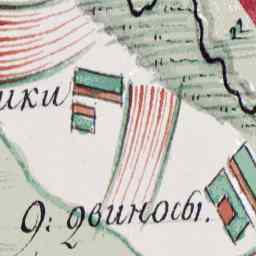 ики
9: двиносы.